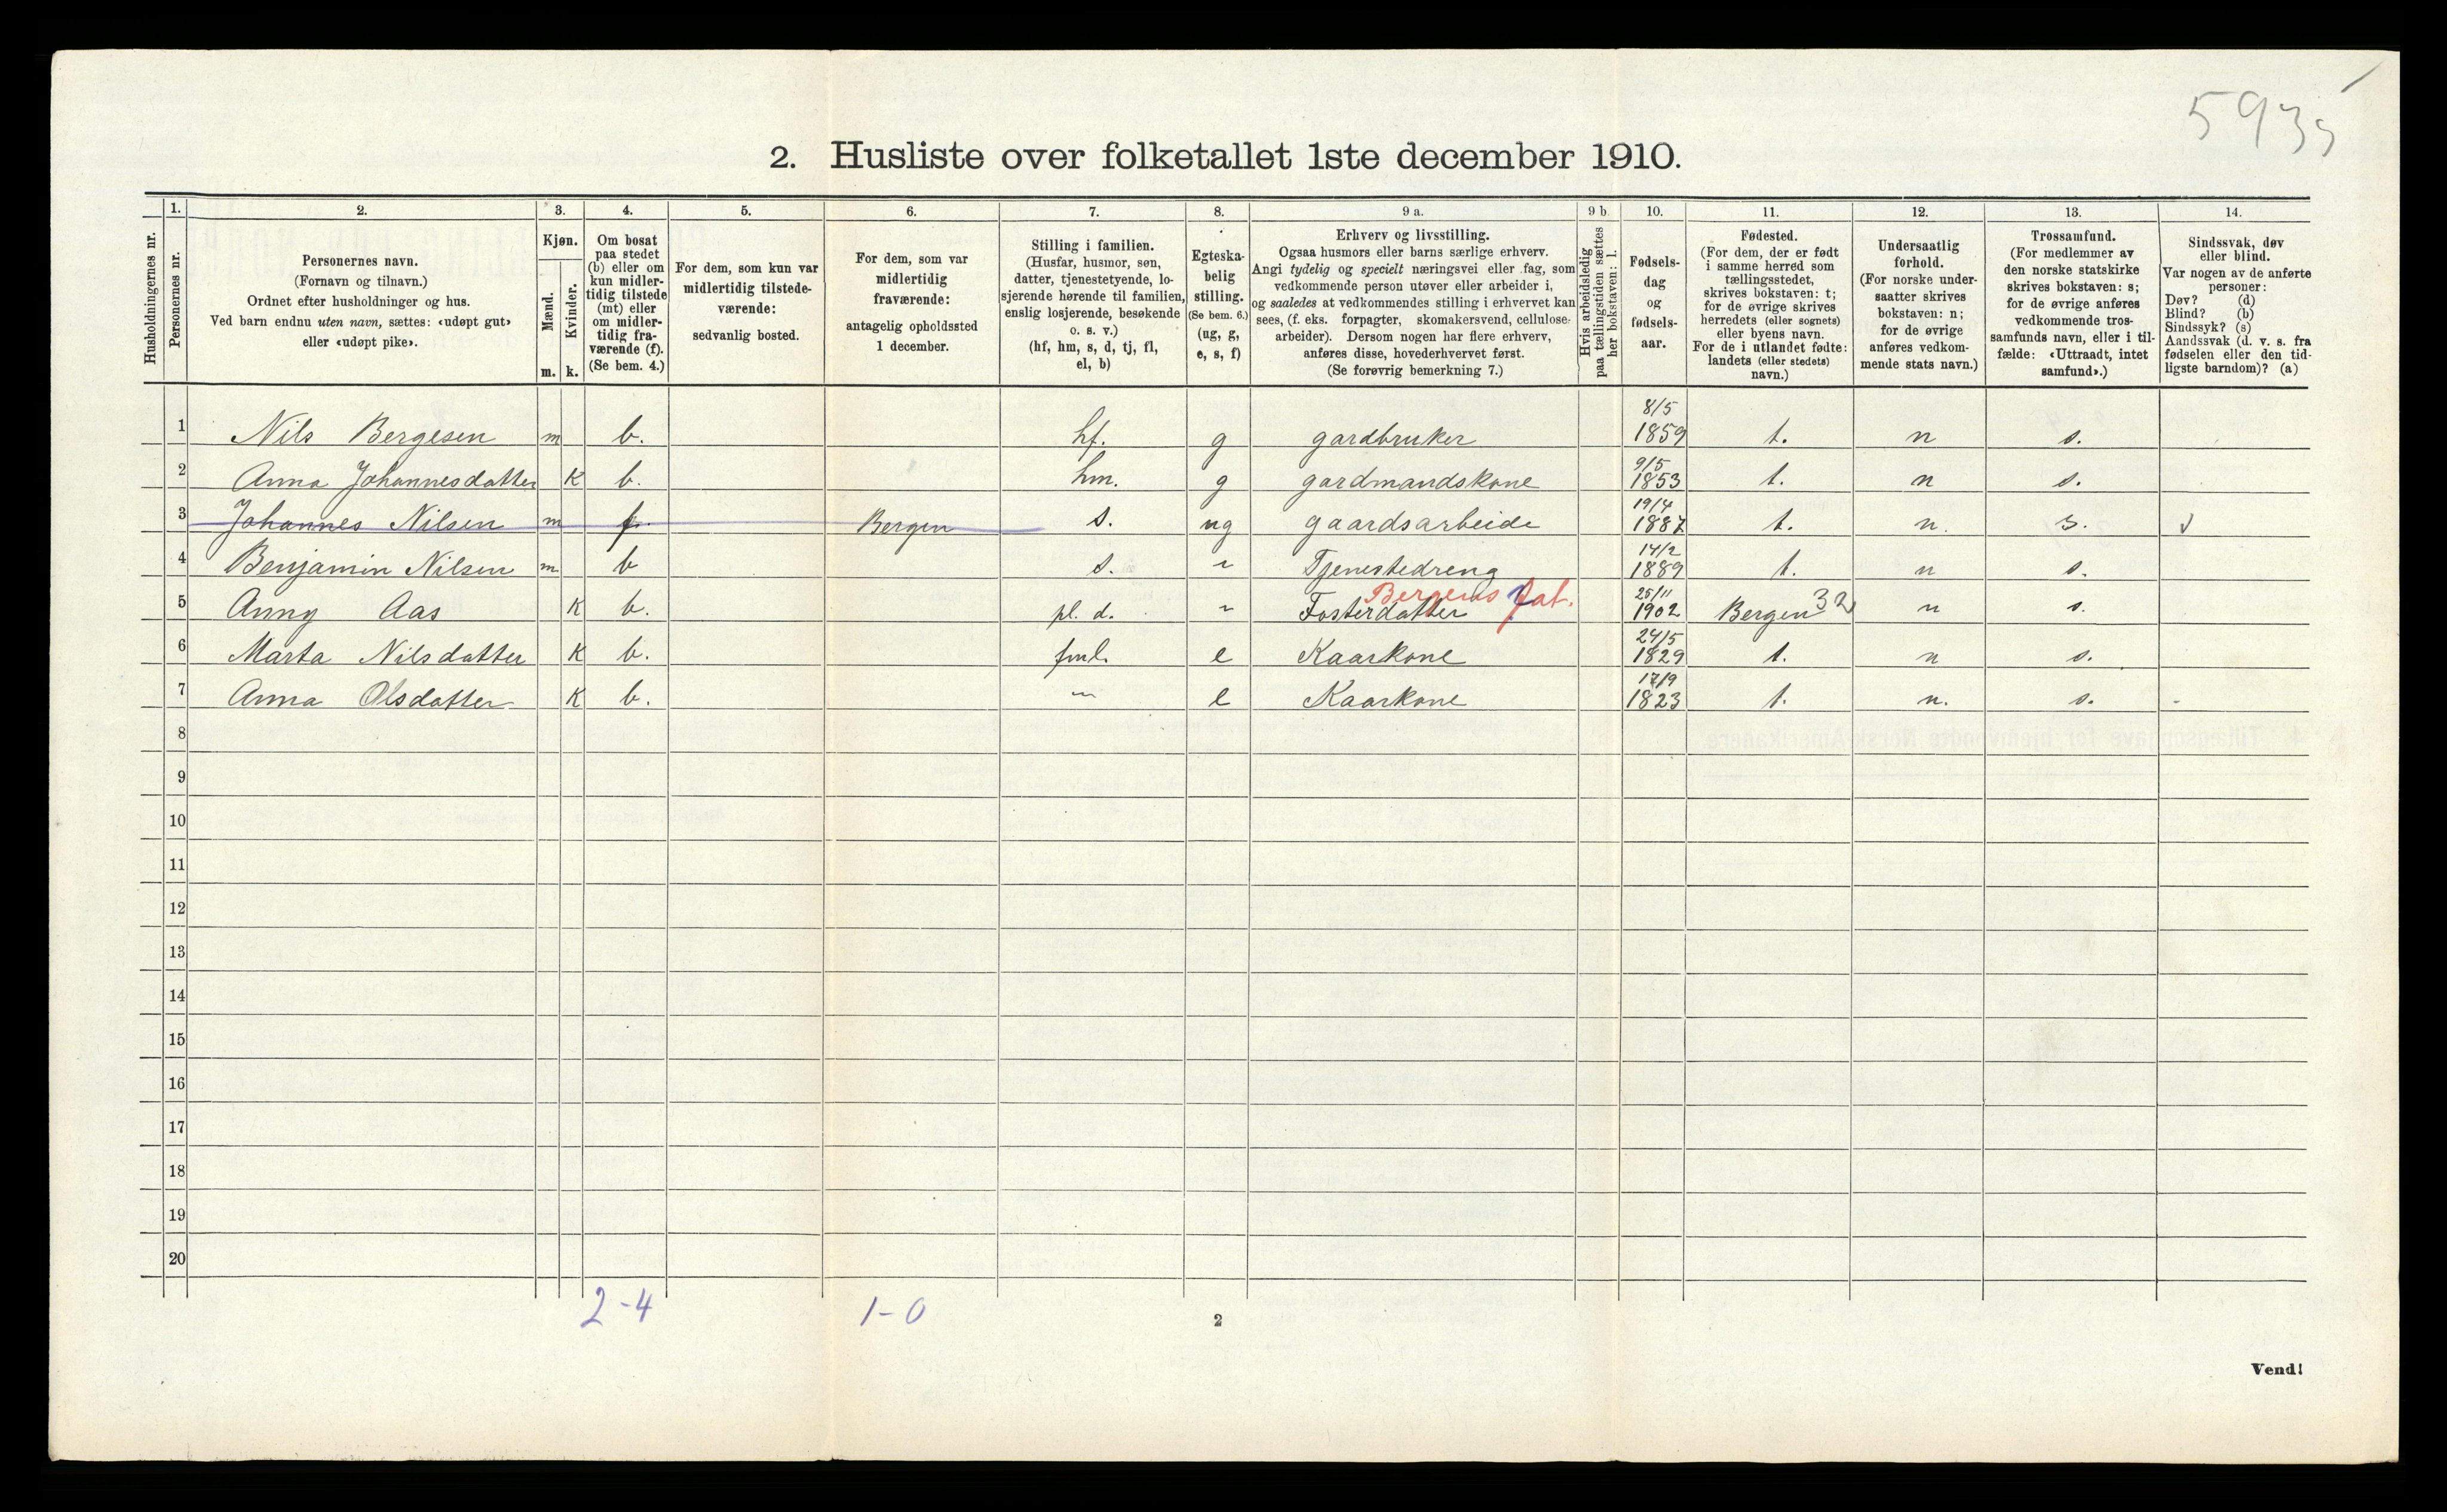 5935
2. Husliste over folketallet 1ste december 1910.
Husholdningernes nr.
1.
Personernes nr.
2.
Personernes navn.
(Fornavn og tilnavn.)
Ordnet efter husholdninger og hus.
Ved barn endnu uten navn, sættes: «udøpt gut»
eller «udøpt pike».
3.
Kjøn.
Mænd.
m.
Kvinder.
k.
4.
Om bosat
paa stedet
(b) eller om
kun midler-
tidig tilstede
(mt) eller
om midler-
tidig fra-
værende (f).
(Se bem. 4.)
5.
For dem, som kun var
midlertidig tilstede-
værende:
sedvanlig bosted.
6.
For dem, som var
midlertidig
fraværende:
antagelig opholdssted
1 december.
7.
Stilling i familien.
(Husfar, husmor, søn,
datter, tjenestetyende, lo-
sjerende hørende til familien,
enslig losjerende, besøkende
o. s. v.)
(hf, hm, s, d, tj, fl,
el, b)
8.
Egteska-
belig
stilling.
(Se bem. 6.)
(ug, g,
e, s, f)
9 a.
Erhverv og livsstilling.
Ogsaa husmors eller barns særlige erhverv.
Angi tydelig og specielt næringsvei eller fag, som
vedkommende person utøver eller arbeider i,
og saaledes at vedkommendes stilling i erhvervet kan
sees, (f. eks. forpagter, skomakersvend, cellulose-
arbeider). Dersom nogen har flere erhverv,
anføres disse, hovederhvervet først.
(Se forøvrig bemerkning 7.)
9 b
Hvis arbeidsledig
paa tællingstiden sættes
her bokstaven: l.
10.
Fødsels-
dag
og
fødsels-
aar.
11.
Fødested.
(For dem, der er født
i samme herred som
tællingsstedet,
skrives bokstaven: t;
for de øvrige skrives
herredets (eller sognets)
eller byens navn.
For de i utlandet fødte:
landets (eller stedets)
navn.)
12.
Undersaatlig
forhold.
(For norske under-
saatter skrives
bokstaven: n;
for de øvrige
anføres vedkom-
mende stats navn.)
13.
Trossamfund.
(For medlemmer av
den norske statskirke
skrives bokstaven: s;
for de øvrige anføres
vedkommende tros-
samfunds navn, eller i til-
fælde: «Uttraadt, intet
samfund».)
14.
Sindssvak, døv
eller blind.
Var nogen av de anførte
personer:
Døv? (d)
Blind? (b)
Sindssyk? (s)
Aandssvak (d. v. s. fra
fødselen eller den tid-
ligste barndom)? (a)
1 Nils Bergesen m b. hf. g gardbruker 8/5 1859 t. n s.
2 Anna Johannesdatter K b. hm. g gardmandskone 9/5 1853 t. n s.
3 Johannes Nilsen m f. Bergen s. ug gaardsarbeide 19/4 1887 t. n. s.
4 Benjamin Nilsen m b s. " Tjenestedreng 14/2 1889 t. n s.
Bergens fat.
5 Anny Aas K b. pl. d. " Fosterdatter 25/11 1902 Bergen 32 n s.
6 Marta Nilsdatter K b. fml. e Kaarkone 24/5 1829 t. n s.
7 Anna Olsdatter K b. " e Kaarkone 17/9 1823 t. n. s. -
8
9
10
11
12
13
14
15
16
17
18
19
20
2-4 1-0
2
Vend!